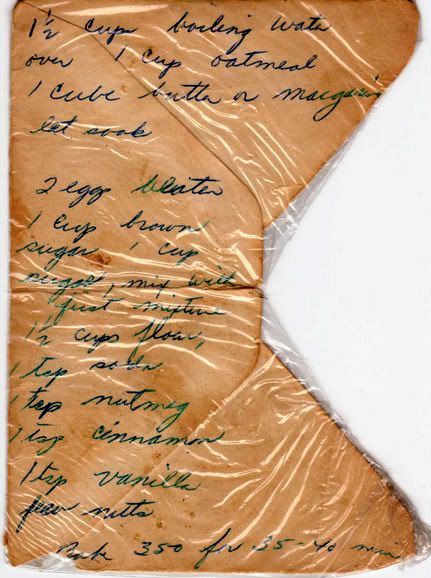 1½ cups boiling water
over 1 cup oatmeal
1 cube butter or margarin
let soak
2 eggs beaten
1 cup brown
sugar 1 cup
sugar, mix with
first mixture
1½ cups flour,
1 tsp soda
1 tsp nutmeg
1 tsp cinnamon
1 tsp vanilla
few nuts
Bake 350 for 35-40 min